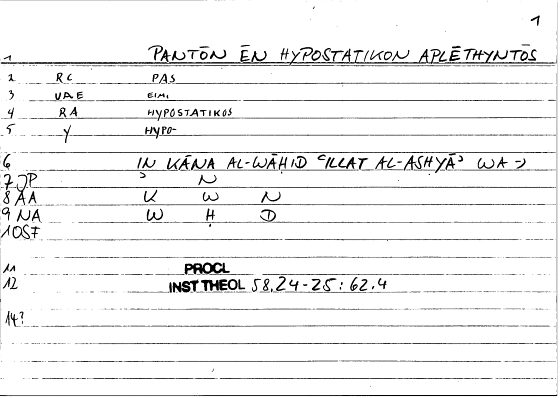 1
1 PANTŌN ĒN HYPOSTATIKON APLĒTHYNTŌS
2 RC PAS
3 VA.E EIMI
4 RA HYPOSTATIKOS
5 Y HYPO-
6 IN KĀNA AL-WĀḤID ʿILLAT AL-ASHYĀʾ WA->
7 JP ʾ N
8 AA K W N
9 NA W Ḥ D
10 SF
11 PROCL
12 INST THEOL 58.24-25:62.4
14?